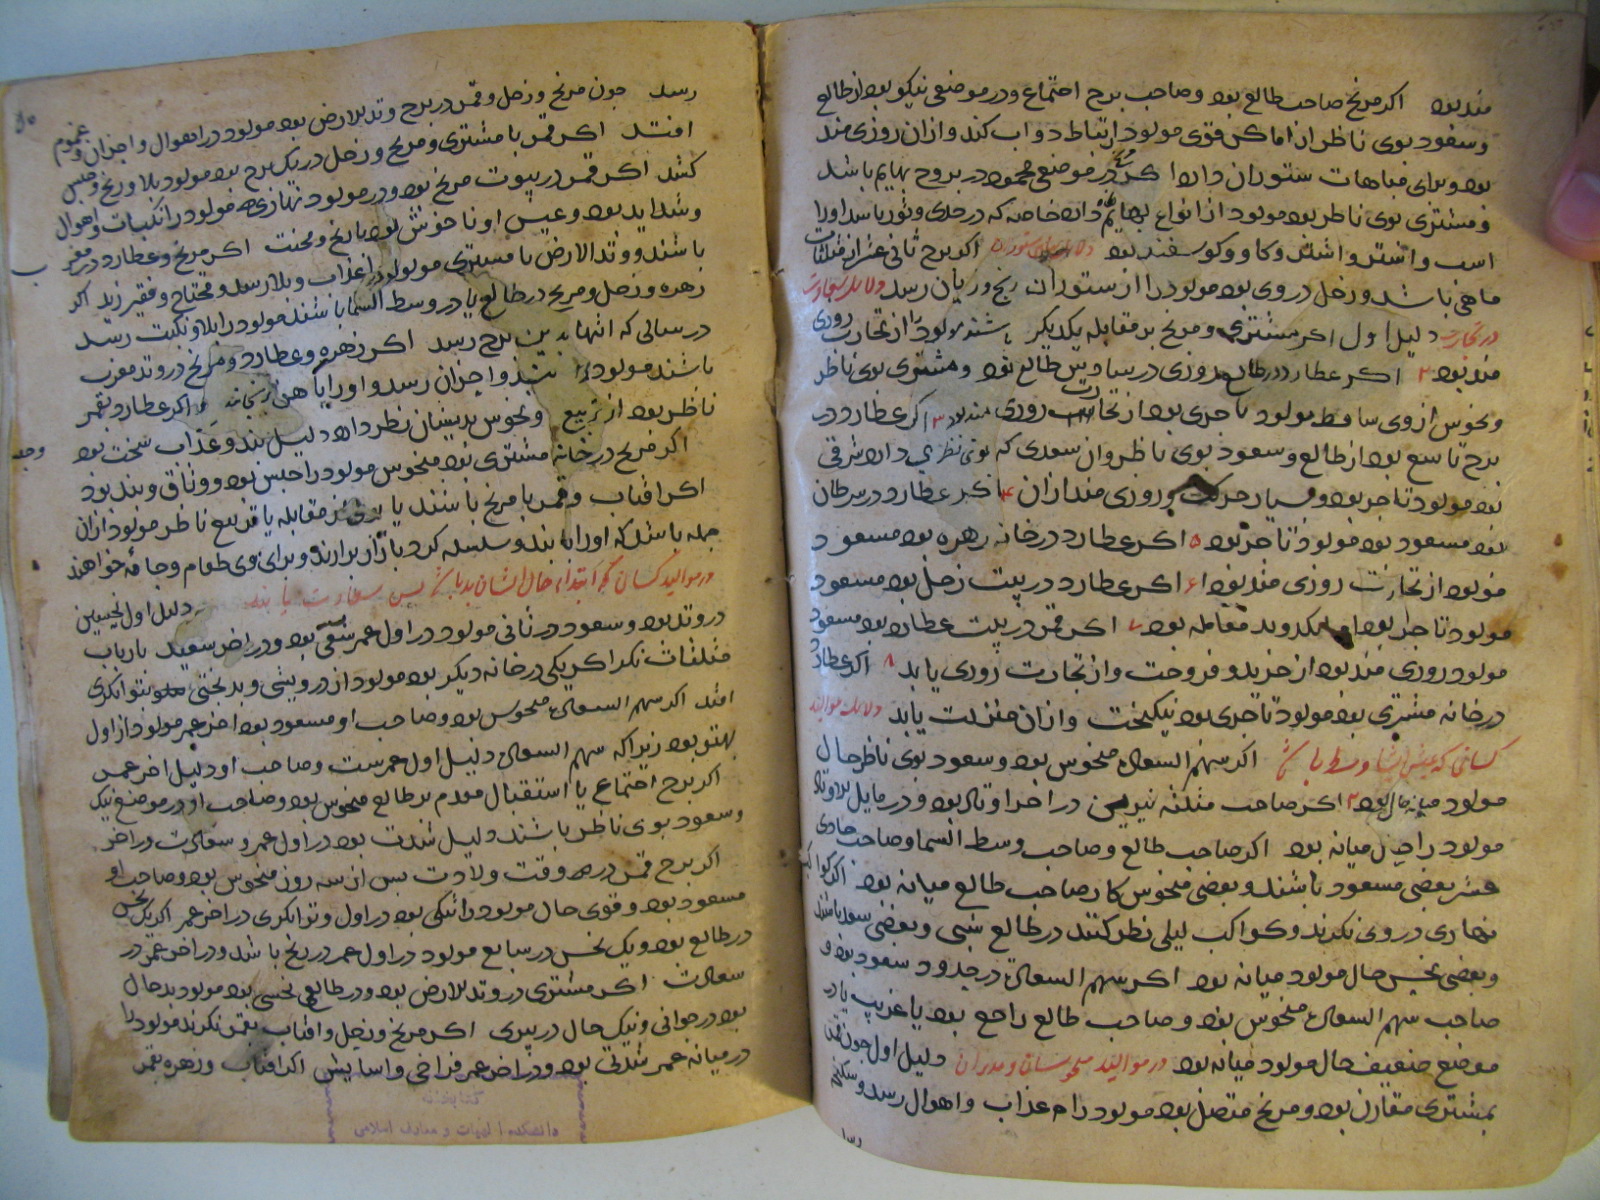 مند بود اکر مریخ صاحب طالع بود وصاحب برج اجتماع ودر موضعی نیکو بود از طالع
وسعود بوی ناظر از اماکن قوی مولود ارتباط دواب کند وازان روزی مند
بود وبرای مباهات ستوران دارد اکر قمر در موضعی محمود در بروج بهایم باشد
ومشتری بوی ناظر بود مولود از انواع بهایم دارد خاصه که در جدی وثور باشد اورا
اسب واشتر واستر وکاو وکوسفند بود اکر برج ثانی عشر از مثلثات
ماهی باشد وزحل در وی بود مولود را از ستوران رنج وزیان رسد دلایل سعادت
در تجارت دلیل اول اکر مشتری ومریخ بر مقابله یکدیکر باشند مولود از تجارت روزی
مند بود ۲ اکر عطارد در طالع روزی در سادس طالع بود ومشتری بوی ناظر
ونحوس از وی ساقط مولود تاجری بود از تجارت روزی مند بود ۳ اکر عطارد در
برج تاسع بود از طالع وسعود بوی ناظر وان سعدی که بوی نظری دارد شرقی
بود مولود تاجر بود وبسیار حرکت وروزی مند ازان ۴ اکر عطارد در سرطان
بود مسعود بود مولود تاجر بود ۵ اکر عطارد در خانه زهره بود مسعود
مولود از تجارت روزی مند بود ۶ اکر عطارد در بیت زحل بود مسعود
مولود تاجر بود اما بکد وبد معامله بود ۷ اکر قمر در بیت عطارد بود مسعود
مولود روزی مند بود از خرید وفروخت واز تجارت روزی یابد ۸ اکر عطارد
در خانه مشتری بود مولود تاجری بود نیکبخت وازان منزلت یابد دلایل موالید
کسانی که عیش ایشان وسط باشد اکر سهم السعاده منحوس بود وسعود بوی ناظر حال
مولود میانه حال بود ۲ اکر صاحب مثلثه نیرین در اخر اوتاد بود ودر مایل بود وتد
مولود را حال میانه بود اکر صاحب طالع وصاحب وسط السما وصاحب حادی
عشر بعضی مسعود باشند وبعضی منحوس کار صاحب طالع میانه بود اکر کواکب
نهاری در وی نکرند وکواکب لیلی نظر کنند در طالع شبی وبعضی سعد باشند
وبعضی نحس حال مولود میانه بود اکر سهم السعاده در حدود سعود بود و
صاحب سهم السعاده منحوس بود وصاحب طالع راجع بود یا غریب یا در
موضع ضعیف حال مولود میانه بود در موالید محبوسان دلیل اول چون قمر
بمشتری مقارن بود ومریخ متصل بود مولود را عذاب واهوال رسد
رسد
رسد جون مریخ وزحل وقمر در برج وتد الارض بود مولود در اهوال واحزان وغموم
افتد اکر قمر با مشتری ومریخ وزحل در یک برج بود مولود بلا ورنج وحبس
کشد اکر قمر در بیوت مریخ بود ودر مولود نهاری مولود را نکبات واهوال
وشداید بود وعیش او ناخوش بود با رنج ومحنت اکر مریخ وعطارد در مغرب
باشند ووتد الارض با مشتری مولود را عذاب وبلا رسد ومحتاج وفقیر زید اکر
زهره وزحل ومریخ در طالع یا در وسط السما باشند مولود را بلا ونکبت رسد
در سالی که انتها بدین برج رسد اکر زهره وعطارد ومریخ در وتد مغرب
باشند مولود را بند واحزان رسد واکر عطارد بقمر
ناظر بود از تربیع ونحوس بدیشان نظر دارد دلیل بند وعذاب سخت بود
اکر مریخ در خانه مشتری بود منحوس مولود را حبس بود ووثاق وبند بود
اکر افتاب وقمر با مریخ باشند یا مقابله یا تربیع ناظر مولود ازان
جمله باشد که اورا بند وسلسله کرد بازار برارند وبرای وی طعام وجامه خواهند
در موالید کسانی که ابتداء حال ایشان بد باشد پس سعادت یابند دلیل اول نحسین
در وتد بود وسعود در ثانی مولود در اول عمر شقی بود ودر اخر سعید بارباب
مثلثات نکر اکر یکی در خانه دیکر بود مولود از درویشی وبدبختی بتوانکری
افتد اکر سهم السعاده منحوس بود وصاحب او مسعود بود اخر عمر مولود از اول
بهتر بود زیرا که سهم السعاده دلیل اول عمرست وصاحب او دلیل اخر عمر
اکر برج اجتماع یا استقبال مقدم بر طالع منحوس بود وصاحب او در موضع نیک
وسعود بوی ناظر باشند دلیل شدت بود در اول عمر وسعادت در اخر
اکر برج قمر در وقت ولادت پس از سه روز منحوس بود وصاحب او
مسعود بود وقوی حال مولود را تنکی بود در اول وتوانکری در اخر عمر اکر یک نحس
در طالع بود ویک نحس در سابع مولود در اول عمر در رنج باشد ودر اخر عمر در
سعادت اکر مشتری در وتد الارض بود ودر طالع نحسی بود مولود بد حال
بود در جوانی ونیک حال در پیری اکر مریخ وزحل وافتاب بقمر نکرند مولود را
در میانه عمر شدتی بود ودر اخر عمر فراخی واسایش اکر افتاب وزهره بقمر
کتابخانه
دانشکده الهیات و معارف اسلامی